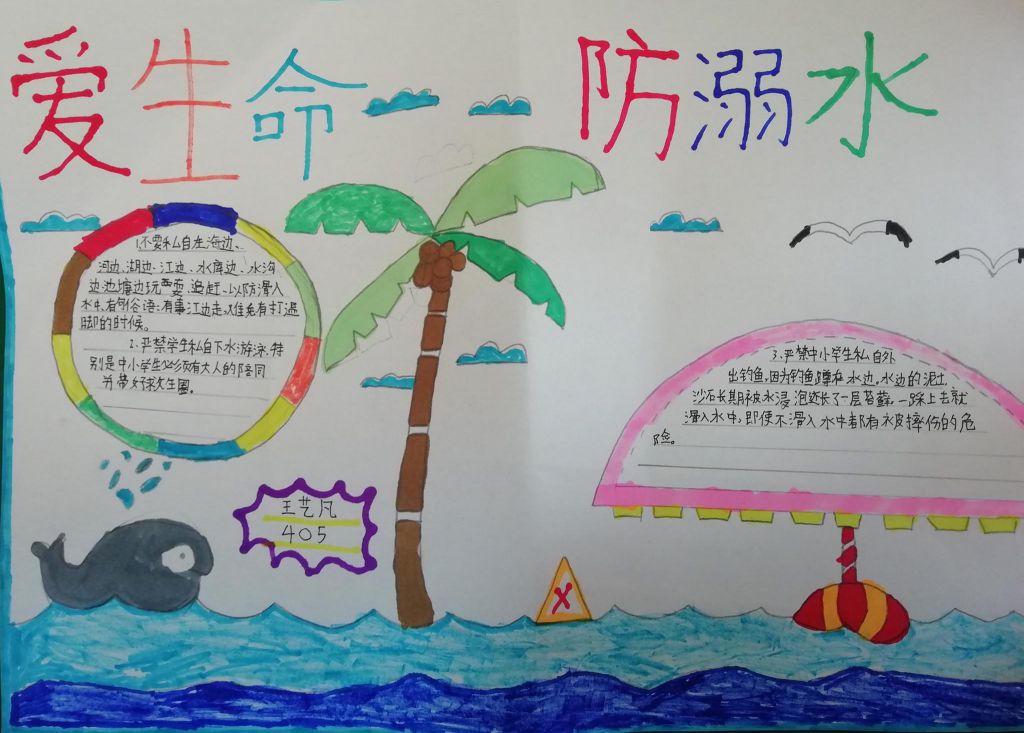 爱生命一防溺水
1.不要私自在海边、
河边、湖边、江边、水库边、水沟
边、池塘边玩耍、追赶、以防滑入
水中,有句俗语:有事江边走,难免有打湿
脚的时候。
2.严禁学生私自下水游泳,特
别是中小学生必须有大人的陪同
并带好救生圈。
3.严禁中小学生私自外
出钓鱼,因为钓鱼蹲在水边,水边的泥土
沙石长期被水浸泡还长了一层苔藓,一踩上去就
滑入水中,即便不滑入水中都有被摔伤的危
险。
王艺凡
405
X